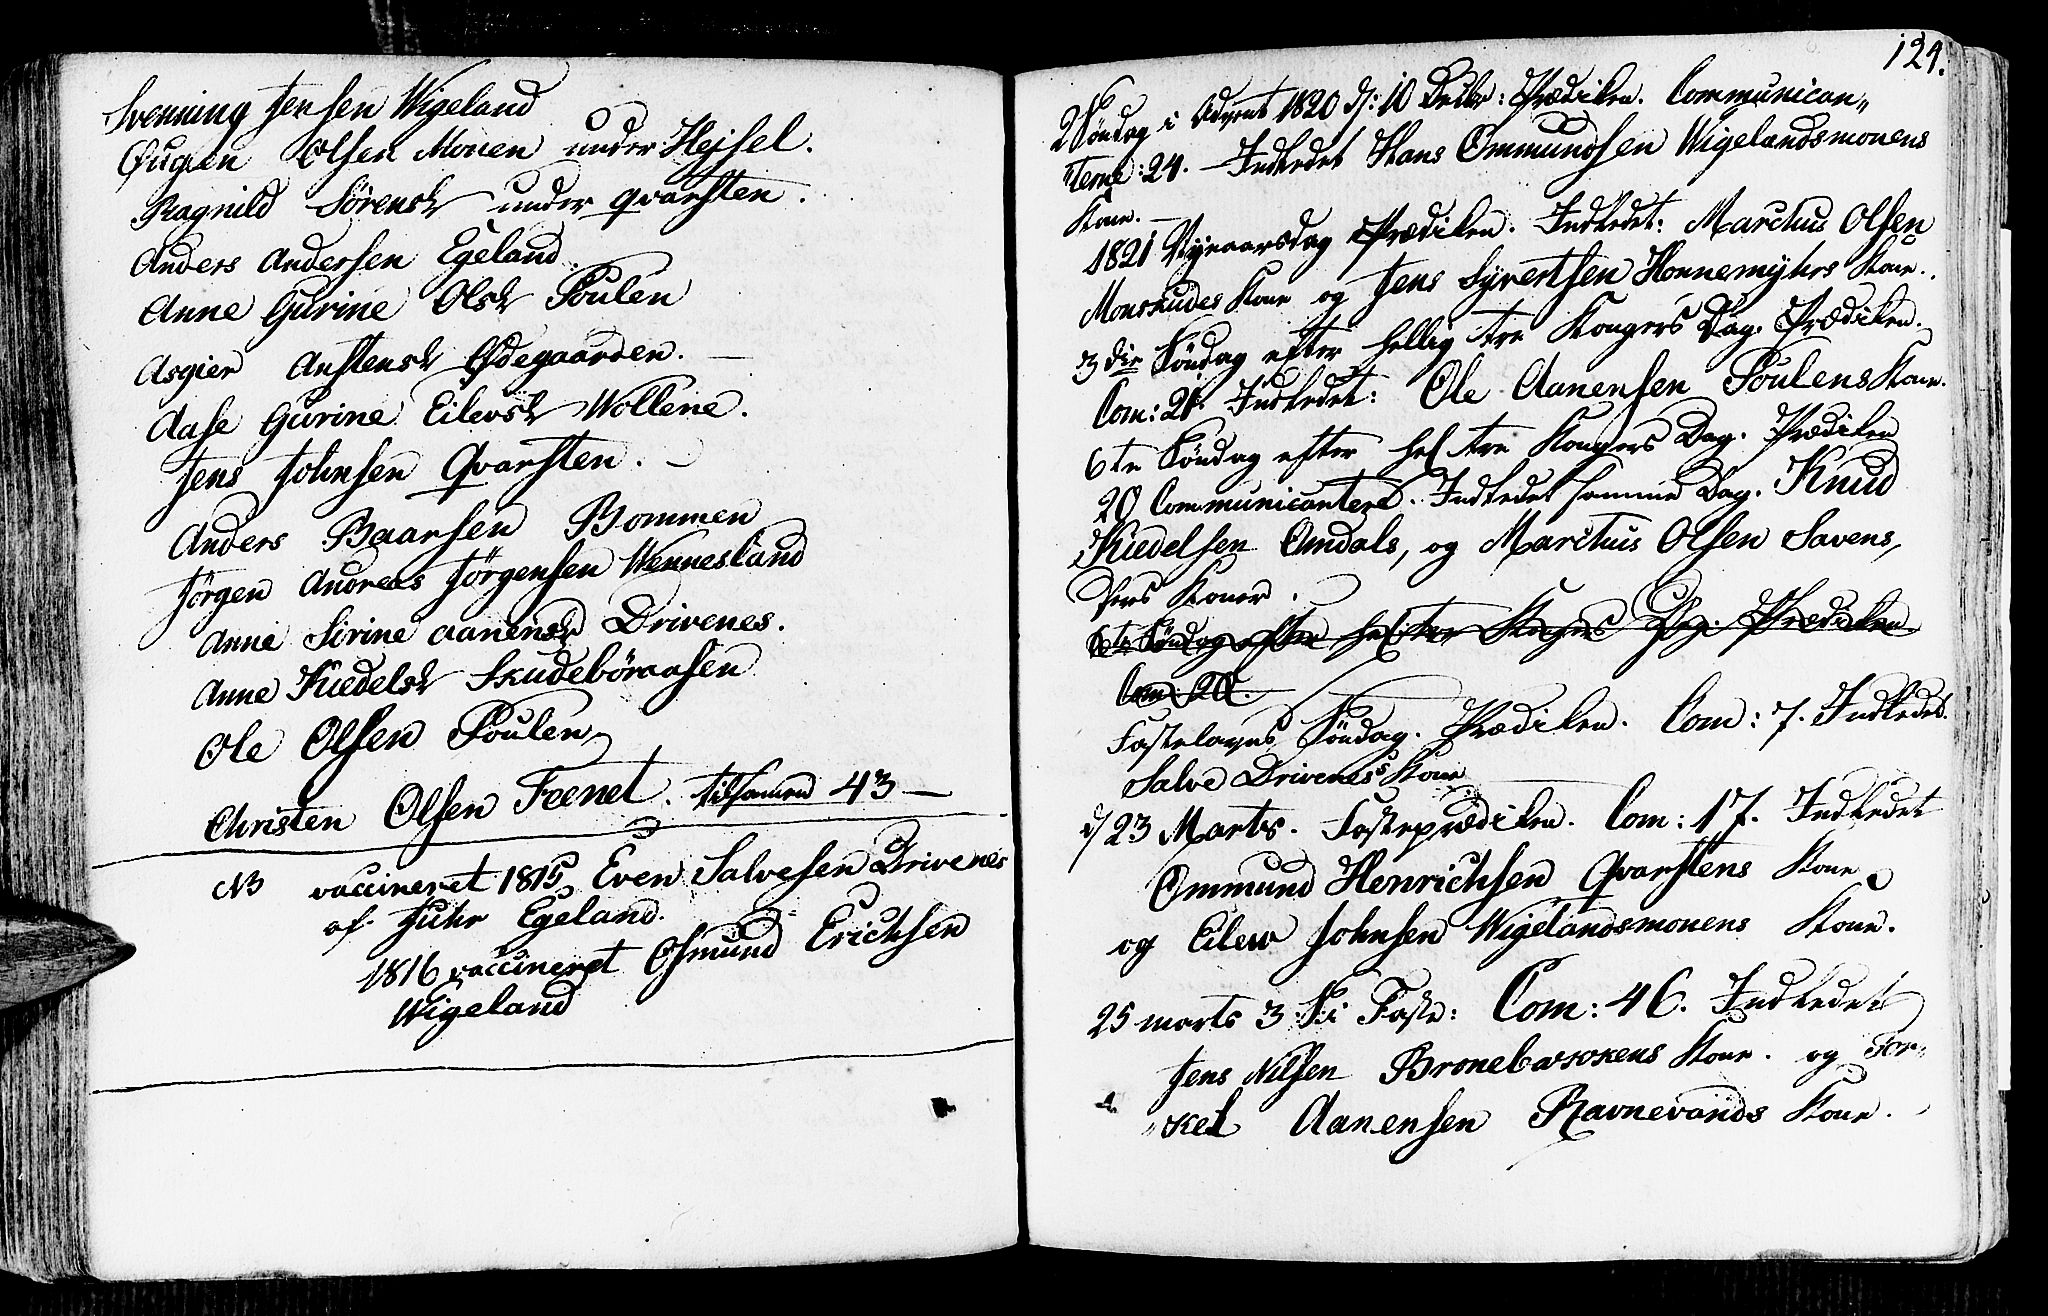 Svenning Jensen Wigeland
Øugen Olsen Monen under Hejsel.
Ragnild Sørensd under Qvarsten.
Anders Andersen Egeland.
Anne Gurine Olsd Soulen
Asgier Anstensd Ødegaarden. —
Aase Gurine Eilevsd Wollene.
Jens Johnsen Qvarsten. —
Anders Baarsen Bommen
Jørgen Andreas Jörgensen Wennesland
Anne Sirine Aanensd Drivenes.
Anne Kiedelsd Skudeböraasen
Ole Olsen Soulen
Christen Olsen Feenet. tilsamen 43 —
NB vaccineret 1815 Even Salvesen Drivenes
af Juhr Egeland.
1816 vaccineret Osmund Erichsen
Wigeland
124.
2 Söndag i Advent 1820 d: 10 Decbr: Prædiken. Communican„
„terne: 24. – Indledet Hans Ommundsen Wigelandsmonens
Kone. —
1821 Nyeaarsdag Prædiken. Indledet: Marcus Olsen
Monskudes Kone og Jens Syvertsen Honnemyhrs Kone.
3die Söndag efter hellig tre Kongers Dag. Prædiken.
Com: 21. Indledet: Ole Aanensen Soulens Kone.
6te Söndag efter hel tre Kongers Dag. Prædiken
20 Communicantere. Indledet samme Dag. Knud
Kiedelsen Omdals, og Marcus Olsen Savens,
Koner.
6te Söndag efter hel: tre Kongers Dag. Prædiken
Com: 20. —
Fastelavns Söndag. Prædiken. Com: 7. Indledet.
Salve Drivenes's Kone
d/ 23 Marts. Fasteprædiken. Com: 17. Indledet
Ommund Henrichsen Qvarstens Kone
og Eilev Johnsen Wigelandsmonens Kone.
25 marts 3 S: i Faste: Com: 46. Indledet
Jens Nilsen Bronebakkens Kone. og Tor„
„kel Aanensen Ravnevands Kone.